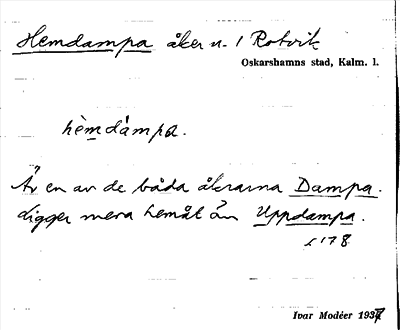 Hemdampa åker n. 1 Rotvik
Oskarshamns stad, Kalm. l.
hèmdàmpa.
Är en av de båda åkrarna Dampa.
Ligger mera hemåt än Uppdampa.
s 178
Ivar Modéer 1937